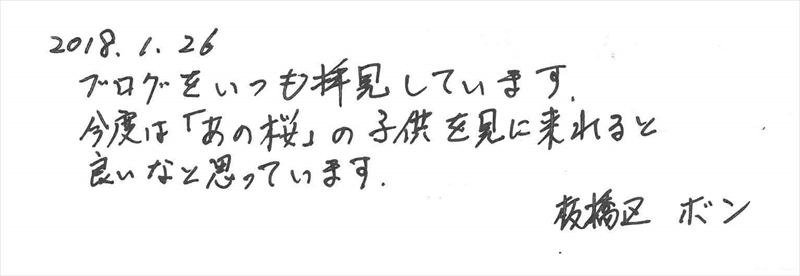 2018.1.26
ブログをいつも拝見しています.
今度は「あの桜」の子供を見に来れると
良いなと思っています.
板橋区 ボン